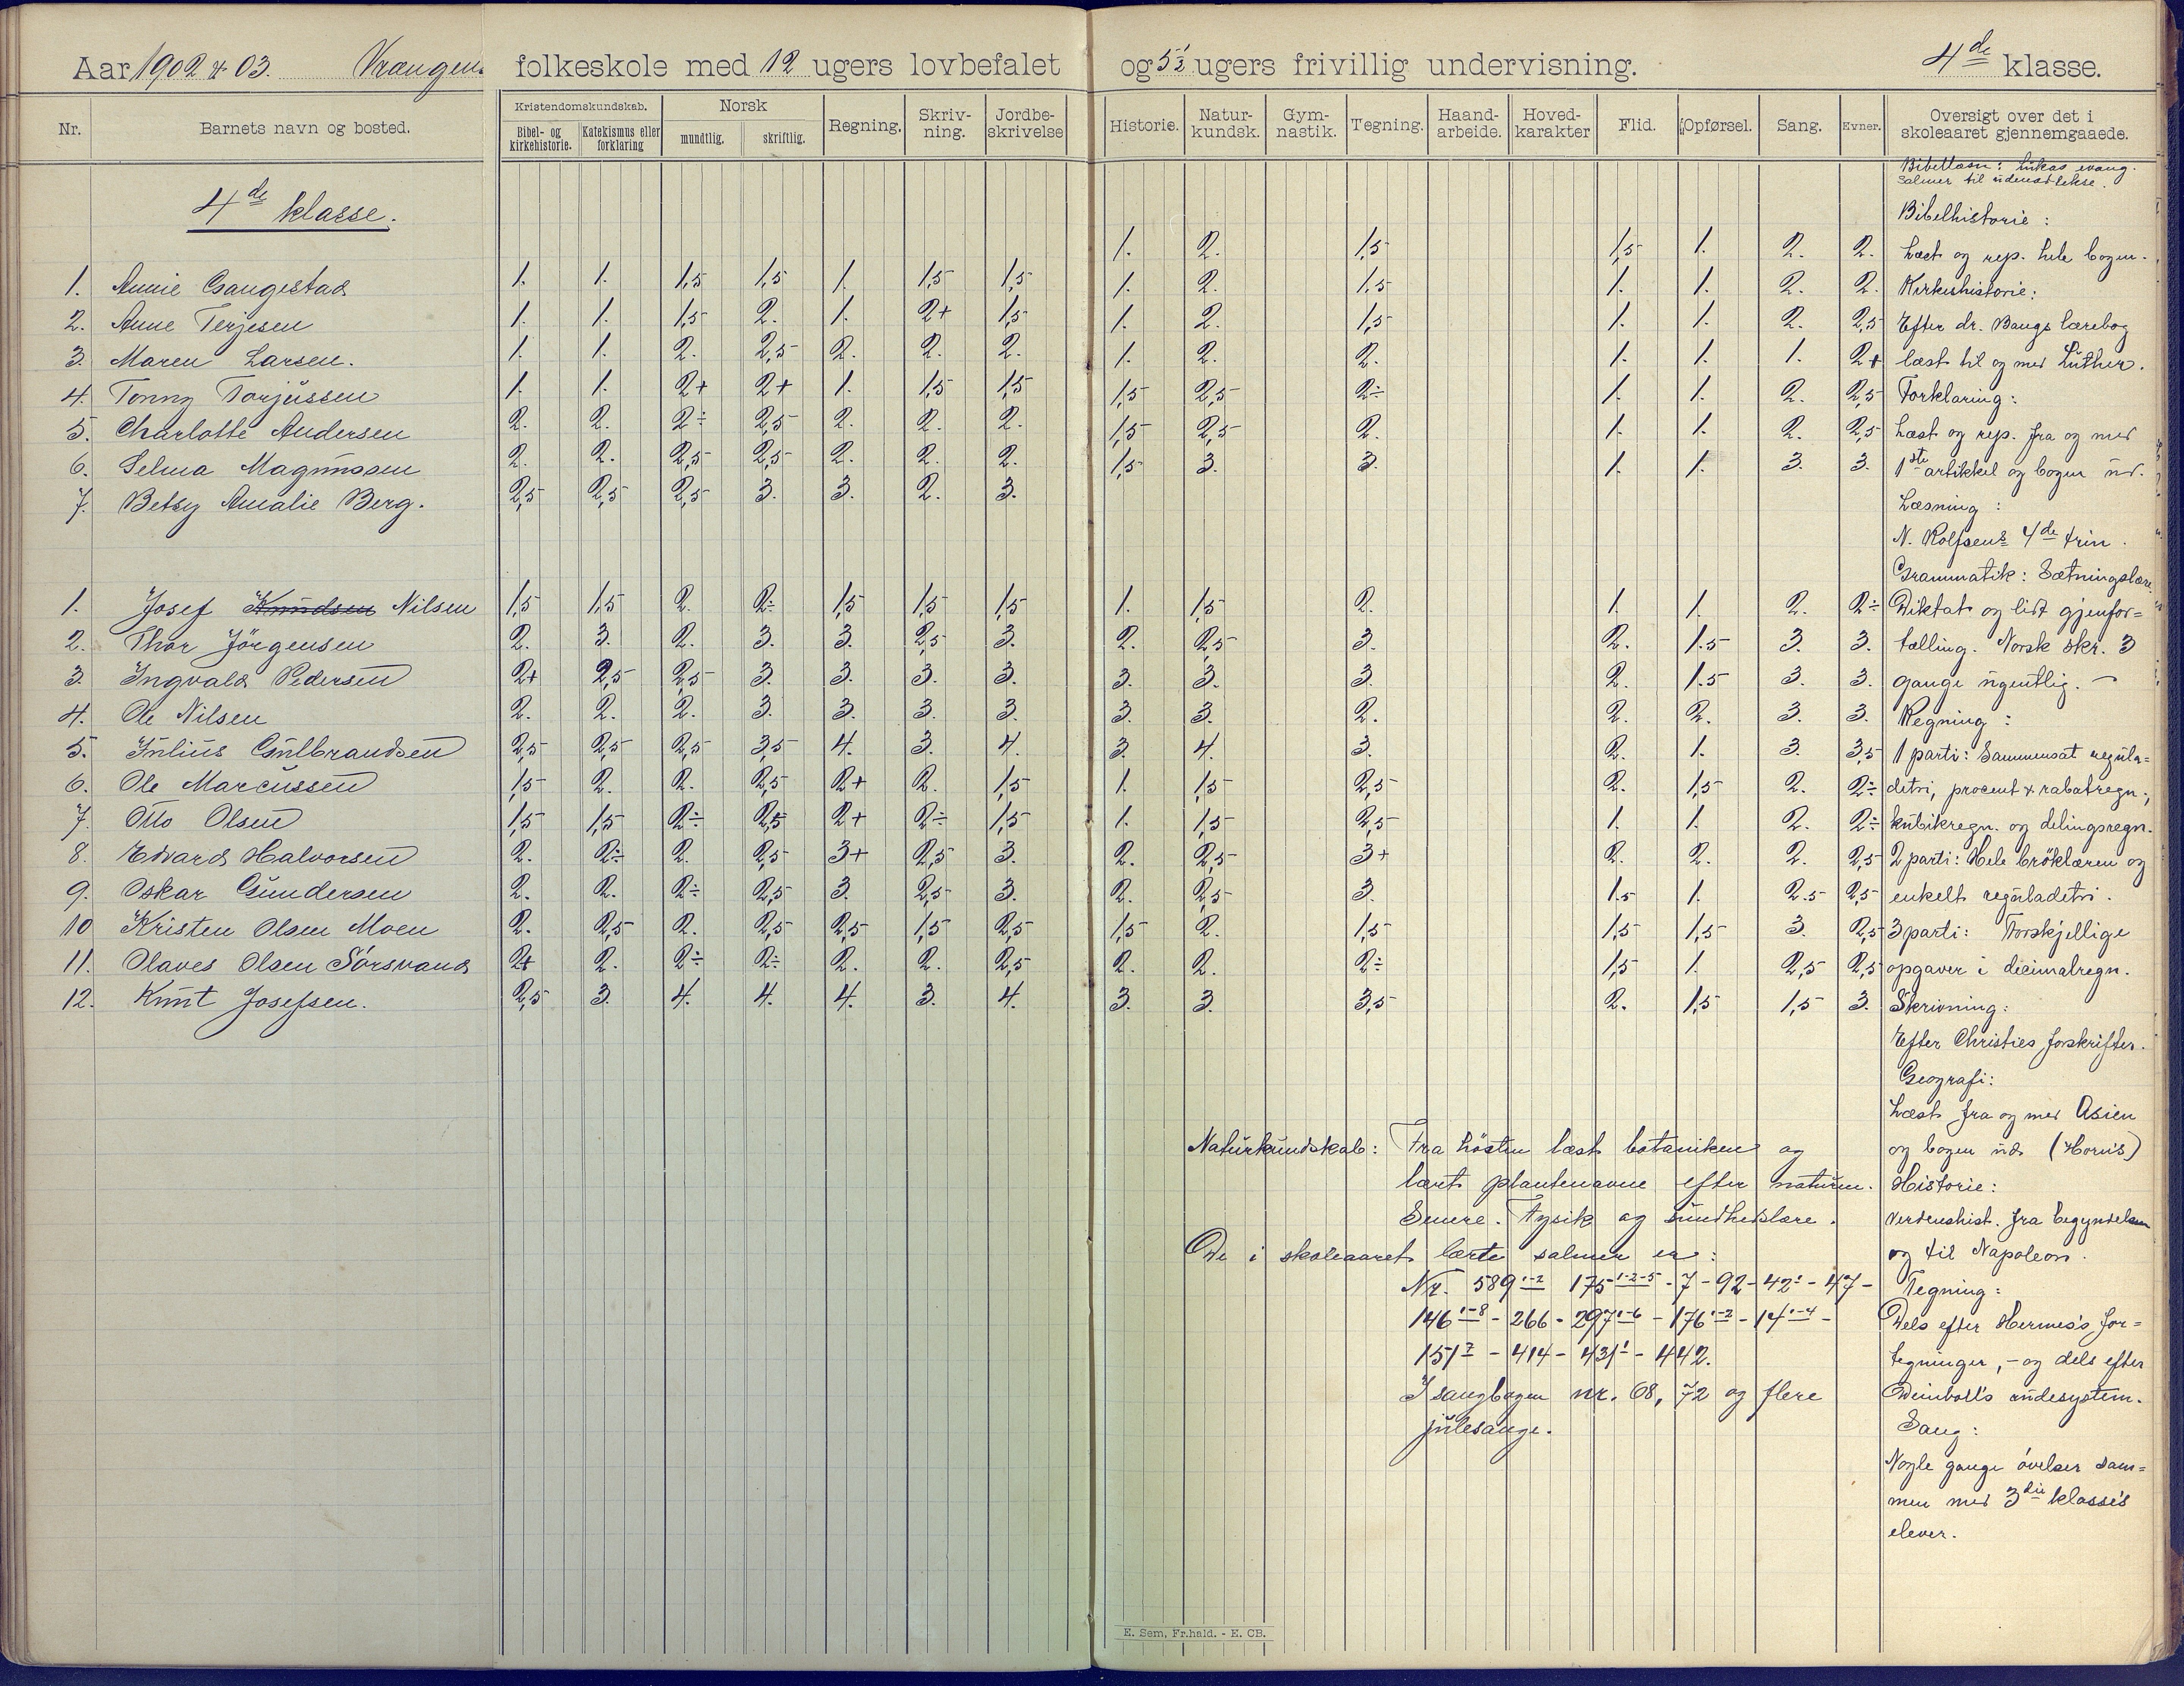 Aar 1902 & 03. Vrængen folkeskole med 12 ugers lovbefalet og 5½ ugers frivillig undervisning. 4de klasse.
Nr. Barnets navn og bosted. Kristendomskundskab. Bibel- og kirkehistorie. Katekismus eller forklaring Norsk mundtlig. skriftlig. Regning. Skriv- ning. Jordbe- skrivelse Historie. Natur- kundsk. Gym- nastik. Tegning. Haand- arbeide. Hoved- karakter Flid. Opførsel. Sang. Evner. Oversigt over det i skoleaaret gjennemgaaede.
4de klasse.
1. Annie Gaugestad 1. 1. 1,5 1,5 1. 1,5 1,5 1. 2. 1,5 1,5 1. 2. 2.
2. Anne Terjesen 1. 1. 1,5 2. 1. 2+ 1,5 1. 2. 1,5 1. 1. 2. 2.
3. Maren Larsen. 1. 1. 2. 2,5 2. 2. 2. 1. 2. 1,5 1. 1. 2. 2,5
4. Tonny Torjussen 1. 1. 2+ 2+ 1. 1,5 1,5 1. 2. 2. 1. 1. 1. 2+
5. Charlotte Andersen 2. 2. 2÷ 2,5 2. 2. 2. 1,5 2,5 2÷ 1. 1. 2. 2,5
6. Selma Magnussen 2. 2. 2,5 2,5 2. 2. 2. 1,5 2,5 2. 1. 1. 2. 2,5
7. Betsy Amalie Berg. 2,5 2,5 2,5 3. 3. 2. 3. 1,5 3. 3. 1. 1. 3. 3.
1. Josef Knudsen Nilsen 1,5 1,5 2. 2÷ 1,5 1,5 1,5 1. 1,5 2. 1. 1. 2. 2÷
2. Thor Jörgensen 2. 3. 2. 3. 3. 2,5 3. 2. 2,5 3. 2. 1.5 3. 3.
3. Ingvald Pedersen 2+ 2,5 2,5 3. 3. 3. 3. 3. 3. 3. 2. 1.5 3. 3.
4. Ole Nilsen 2. 2. 2. 3. 3. 3. 3. 3. 3. 2. 2. 2. 3. 3.
5. Julius Gulbrandsen 2,5 2,5 2,5 3,5 4. 3. 4. 3. 4. 3. 2. 1. 3. 3,5
6. Ole Marcussen 1,5 2. 2. 2,5 2+ 2. 1,5 1. 1,5 2,5 2. 1,5 2. 2÷
7. Otto Olsen 1,5 1,5 2÷ 2,5 2+ 2÷ 1,5 1. 1,5 2,5 1. 1. 2. 2÷
8. Edvard Halvorsen 2. 2÷ 2. 2,5 3+ 2,5 3. 2. 2,5 3+ 2. 2. 2. 2,5
9. Oskar Gundersen 2. 2. 2÷ 2,5 3. 2,5 3. 2. 2,5 3. 1.5 1. 2.5 2,5
10 Kristen Olsen Moen 2. 2,5 2. 2,5 2,5 1,5 2,5 1,5 2. 1,5 1,5 1,5 3. 2,5
11. Olaves Olsen Sörsvand 2+ 2. 2÷ 2÷ 2. 2. 2,5 2. 2. 2÷ 1,5 1. 2,5 2,5
12. Knut Josefsen. 2,5 3. 4. 4. 4. 3. 4. 3. 3. 3,5 2. 1,5 1,5 3.
Bibellæsn: Lukas evang.
Salmer til udenadlekse.
Bibelhistorie:
Læst og rep. hele bogen.
Kirkehistorie:
Efter dr. Bangs lærebog
læst til og med Luther.
Forklaring:
Læst og rep. fra og med
1ste artikkel og bogen ud.
Læsning:
N. Rolfsens 4de trin.
Grammatik: Sætningslære.
Diktat og lidt gjenfor=
tælling. Norsk skr. 3
gange ugentlig. —
Regning:
1 parti: Sammensat regula=
detri, procent & rabatregn.,
kubikregn. og delingsregn.
2 parti: Hele bröklæren og
enkelt reguladetri.
3 parti: Forskjellige
opgaver i decimalregn.
Skrivning:
Efter Christies forskrifter.
Geografi:
Læst fra og med Asien
og bogen ud. (Horns)
Historie:
Verdenshist. fra begyndelsen
og til Napoleon.
Tegning:
Dels efter Hermes's for=
tegninger, - og dels efter
rudesystem.
Sang:
Nogle gange övelser sam=
men med 3die klasse's
elever.
Naturkundskab: Fra hösten læst botaniken og
lært plantenavne efter naturen.
Senere. Fysik og sundhedslære.
De i skoleaaret lærte salmer er:
Nr. 589 1-2 175 1-2-5 - 7 - 92 - 42 1 - 47 -
146 1-8 - 266 - 297 1-6 - 176 1-2 - 14 1-4 -
151 7 - 414 - 431 1 - 442.
I sangbogen nr. 68, 72 og flere
julesange.
E. Sem, Fr.hald. - E. CB.